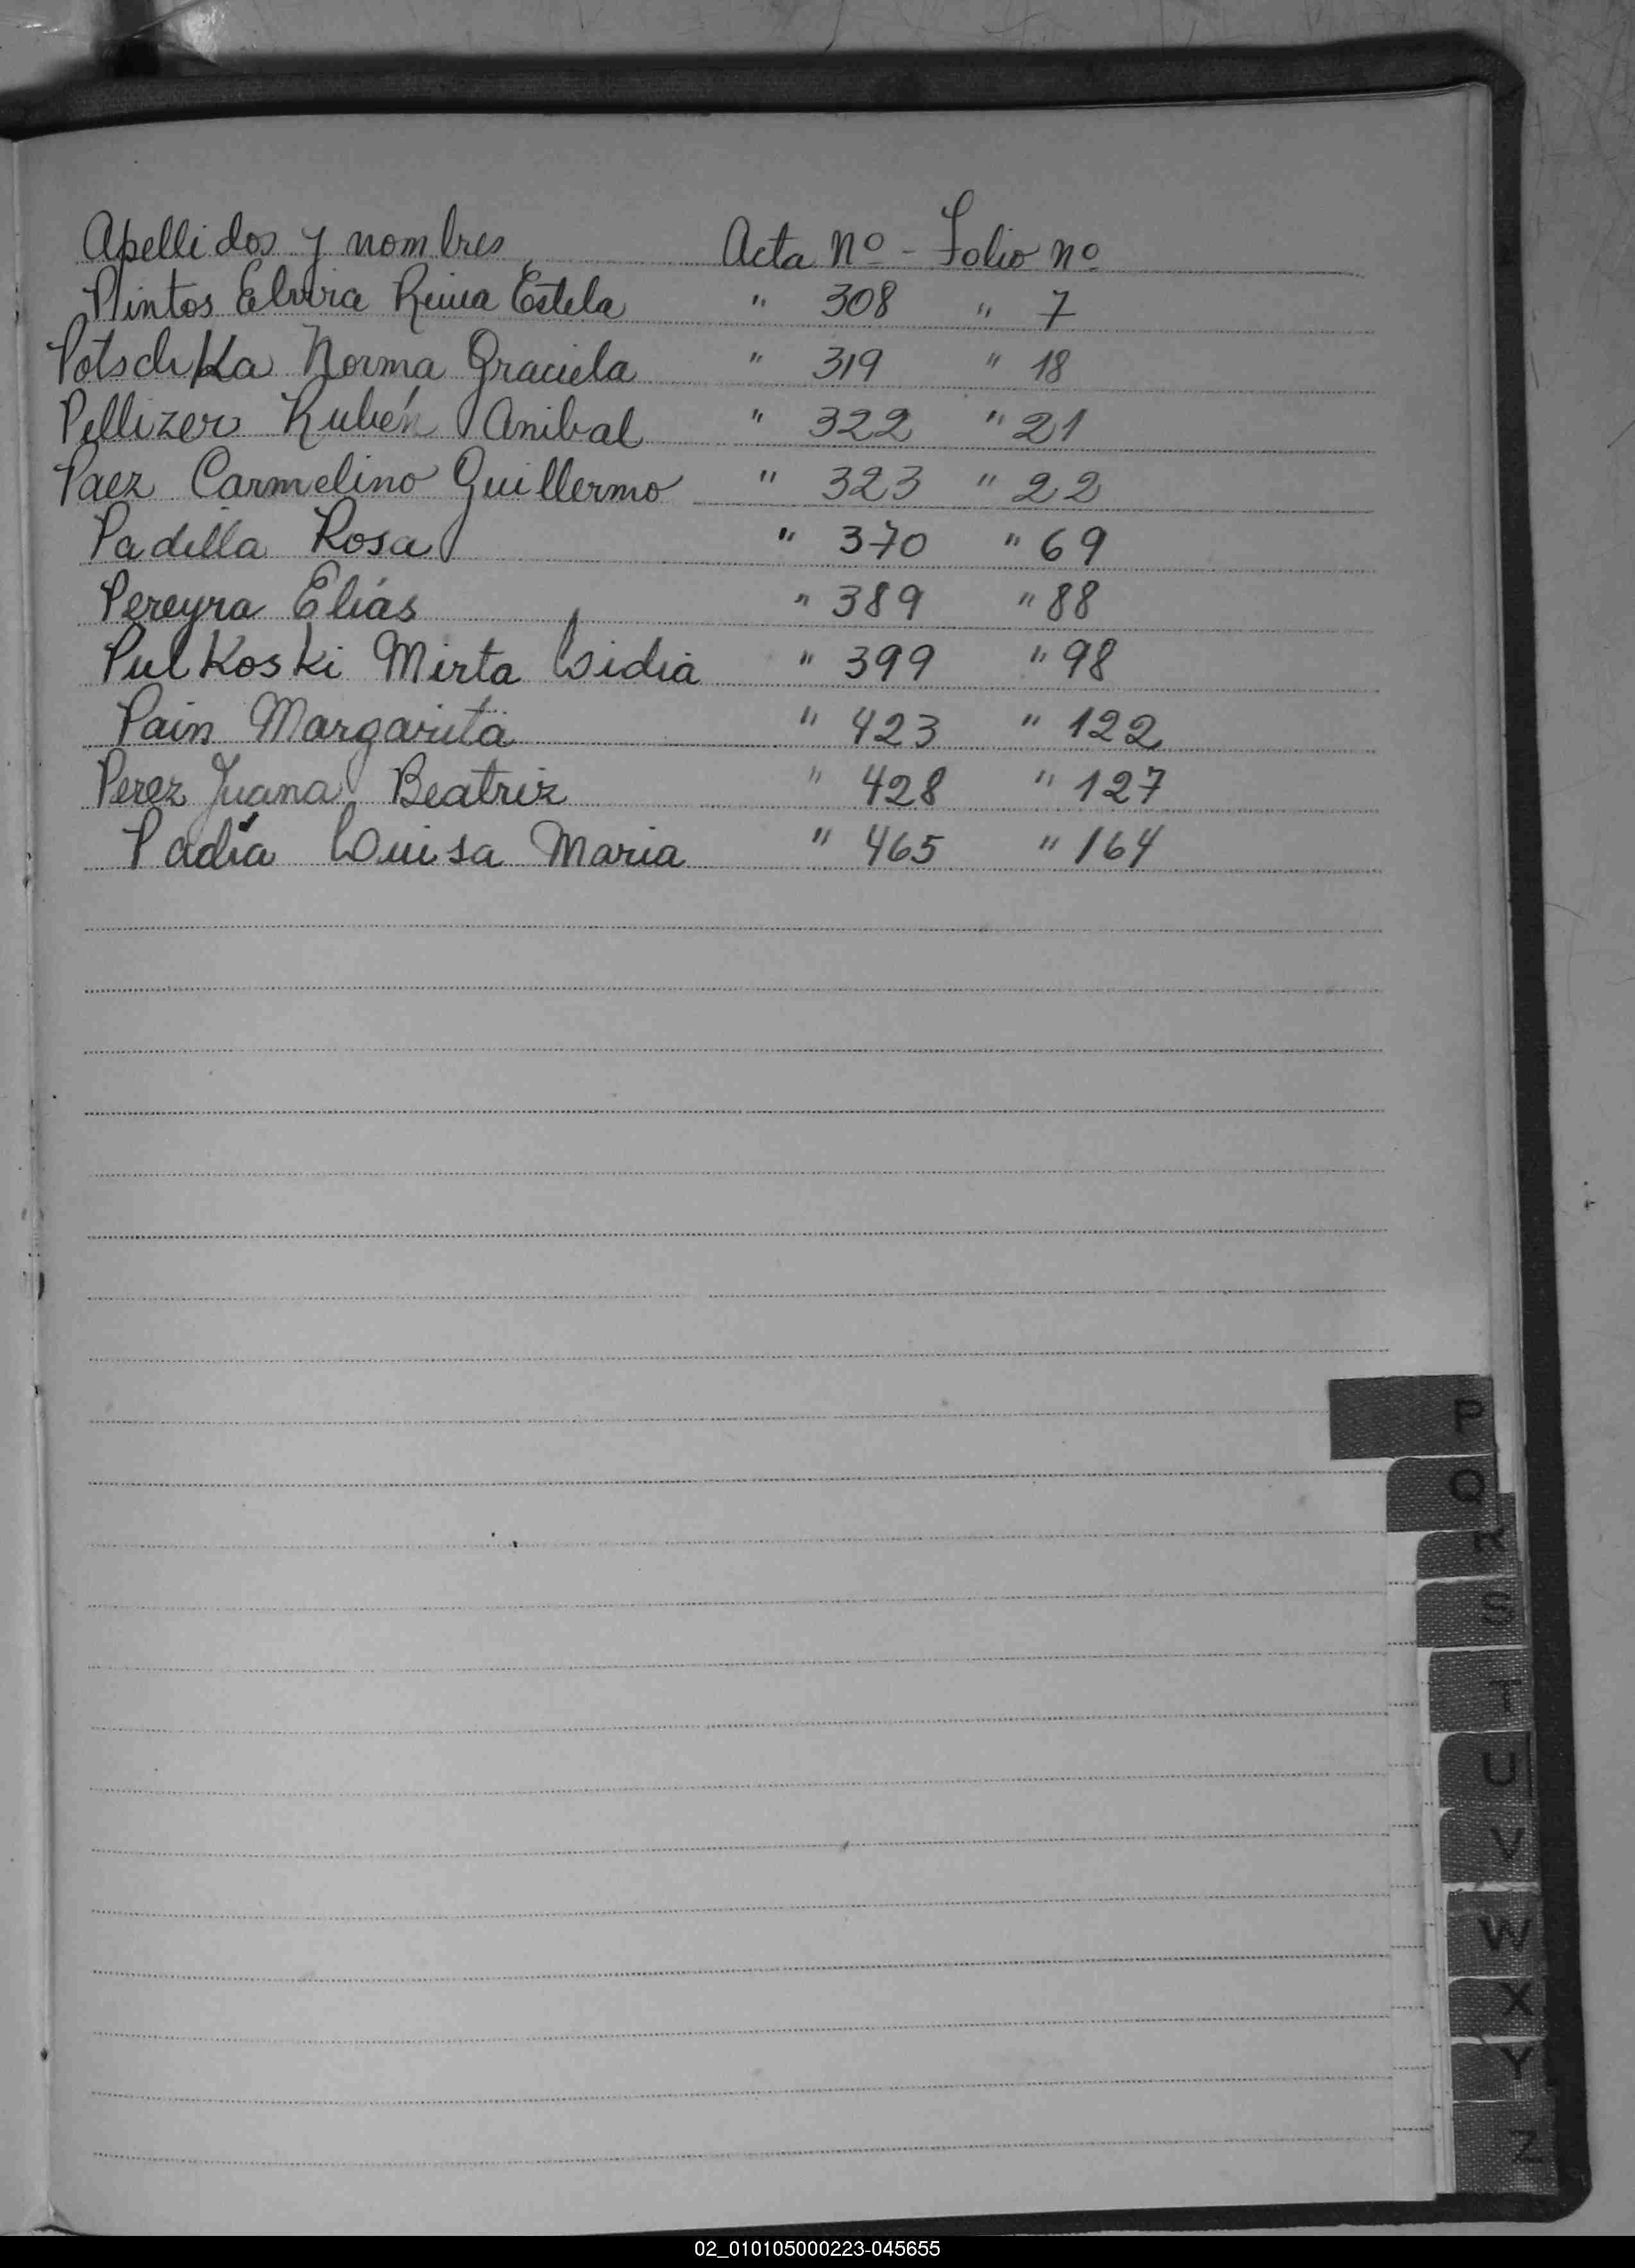 Apellidos y nombres Acta Nº - Folio nº
Pintos Elvira Reina Estela " 308 " 7
Potschka Norma Graciela " 319 " 18
Pellizer Rubén Anibal " 322 " 21
Paez Carmelino Guillermo " 323 " 22
Padilla Rosa " 370 " 69
Pereyra Elías " 389 " 88
Pulkoski Mirta Lidia " 399 " 98
Pain Margarita " 423 " 122
Perez Juana Beatriz " 428 " 127
Padía Luisa Maria " 465 " 164
P
Q
R
S
T
U
V
W
X
Y
Z
02_010105000223-045655